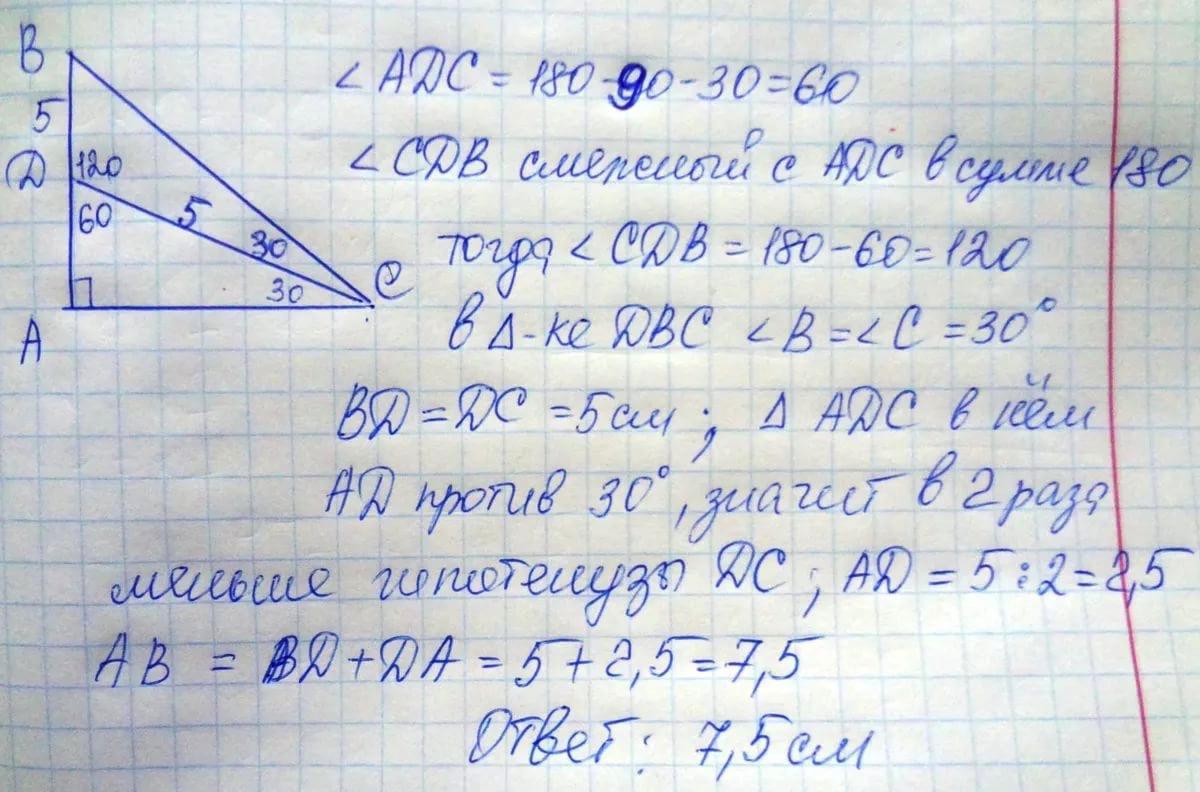 B
5
D
120
60
5
30
30
C
A
∠ ADC = 180-90-30=60
∠ CDB смежный с ADC в сумме 180
тогда ∠ CDB = 180-60=120
в Δ-ке DBC ∠B=∠C=30°
BD=DC=5см; Δ ADC в нём
AD против 30°, значит в 2 раза
меньше гипотенузы DC; AD=5:2=2,5
AB = BD+DA=5+2,5=7,5
Ответ: 7,5см